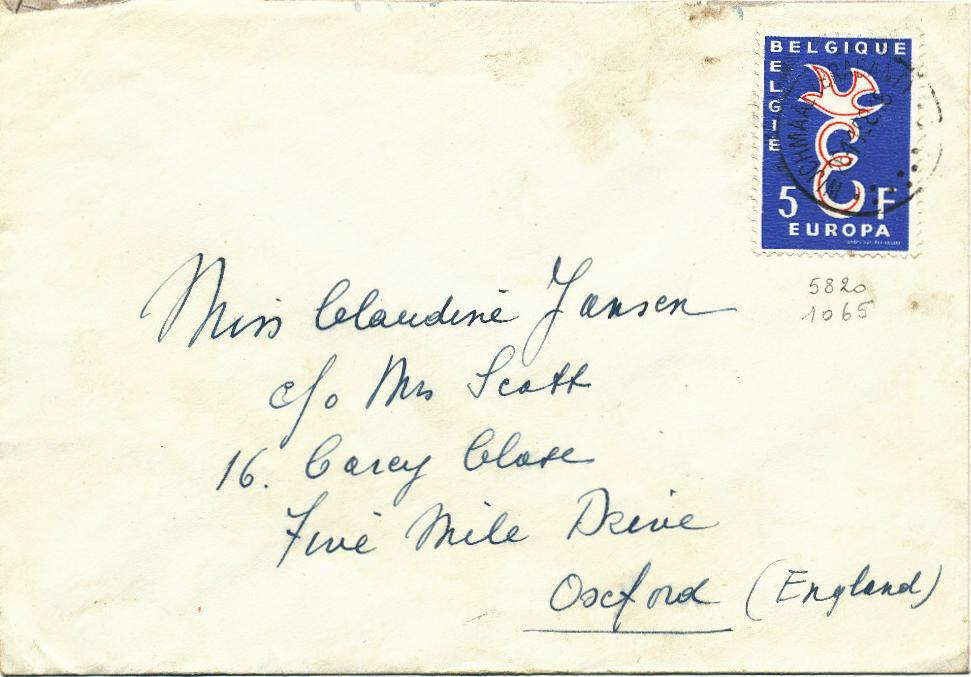 BELGIQUE
BELGIE
5 F
EUROPA
5820
1065
Miss Claudine Jansen
c/o Mrs Scott
16. Carey Close
Five Mile Drive
Oxford (England)